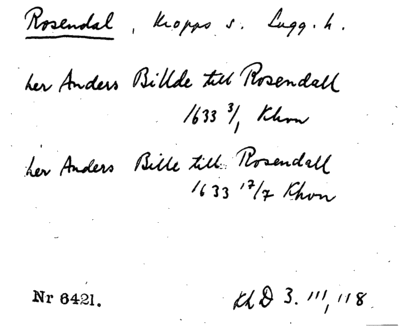 Rosendal, Kropps s. Lugg. h.
her Anders Billde till Rosendall
1633 3/1 Khvn
her Anders Bille till Rosendall
1633 17/7 Khvn
Nr 6421.
KhD 3. 111, 118.